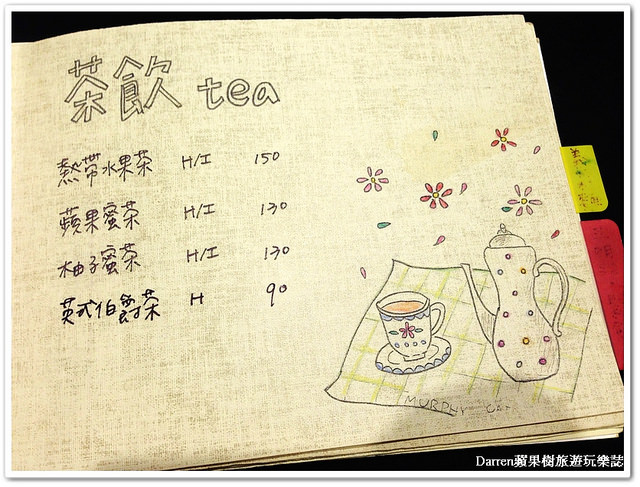 茶飲 tea
熱帶水果茶 H/I 150
蘋果蜜茶 H/I 130
柚子蜜茶 H/I 130
英式伯爵茶 H 90
MURPHY CAT
Darren蘋果樹旅遊玩樂誌